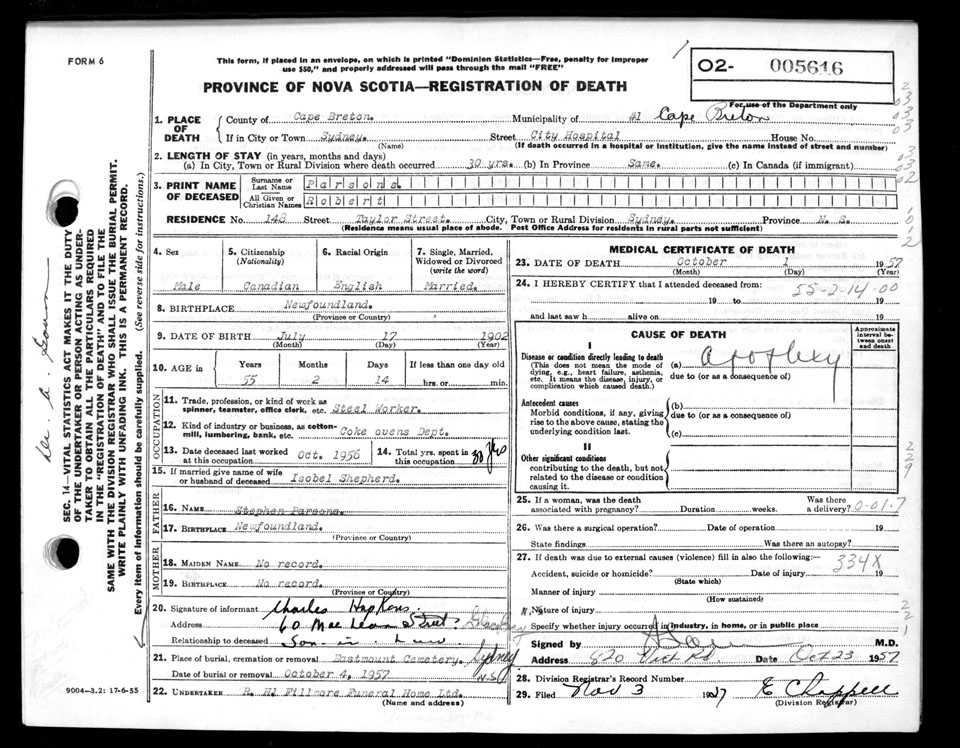 FORM 6
This form, if placed in an envelope, on which is printed "Dominion Statistics—Free, penalty for improper
use $50," and properly addressed will pass through the mail "FREE"
PROVINCE OF NOVA SCOTIA—REGISTRATION OF DEATH
O2- 005616
For use of the Department only
1. PLACE OF DEATH
County of Cape Breton. Municipality of #1 Cape Breton
If in City or Town Sydney. Street City Hospital House No.
(Name) (If death occurred in a hospital or institution, give the name instead of street and number)
2. LENGTH OF STAY (in years, months and days)
(a) In City, Town or Rural Division where death occurred 30 yrs. (b) In Province Same. (c) In Canada (if immigrant)
3. PRINT NAME OF DECEASED
Surname or Last Name Parsons.
All Given or Christian Names Robert
RESIDENCE No. 148 Street Taylor Street. City, Town or Rural Division Sydney. Province N. S.
(Residence means usual place of abode. Post Office Address for residents in rural parts not sufficient)
4. Sex
Male
5. Citizenship
(Nationality)
Canadian
6. Racial Origin
English
7. Single, Married,
Widowed or Divorced
(write the word)
Married.
8. BIRTHPLACE Newfoundland.
(Province or Country)
9. DATE OF BIRTH July 17 1902
(Month) (Day) (Year)
10. AGE in
Years Months Days If less than one day
55 2 14 hrs. or min.
OCCUPATION
11. Trade, profession, or kind of work as
spinner, teamster, office clerk, etc. Steel Worker.
12. Kind of industry or business, as cotton-
mill, lumbering, bank, etc. Coke ovens Dept.
13. Date deceased last worked
at this occupation Oct. 1956
14. Total yrs. spent in
this occupation 30 yrs
15. If married give name of wife
or husband of deceased Isobel Shepherd.
FATHER
16. NAME Stephen Parsons.
17. BIRTHPLACE Newfoundland.
(Province or Country)
MOTHER
18. MAIDEN NAME No record.
19. BIRTHPLACE No record.
(Province or Country)
20. Signature of informant Charles
Address 60 Street. Glace Bay
N.S.
Relationship to deceased Son-in-Law
21. Place of burial, cremation or removal Eastmount Cemetery. Sydney
N.S.
Date of burial or removal October 4, 1957
22. UNDERTAKER R. Hl Fillmore Funeral Home Ltd.
(Name and address)
MEDICAL CERTIFICATE OF DEATH
23. DATE OF DEATH October 1 1957
(Month) (Day) (Year)
24. I HEREBY CERTIFY that I attended deceased from:
55-2-14-00
19 to 19
and last saw h alive on 19
CAUSE OF DEATH
Approximate interval between onset and death
I
Disease or condition directly leading to death
(This does not mean the mode of
dying, e.g., heart failure, asthenia,
etc. It means the disease, injury, or
complication which caused death.)
(a)
due to (or as a consequence of)
Antecedent causes
Morbid conditions, if any, giving
rise to the above cause, stating the
underlying condition last.
(b)
due to (or as a consequence of)
(c)
II
Other significant conditions
contributing to the death, but not
related to the disease or condition
causing it.
25. If a woman, was the death
associated with pregnancy? Duration weeks. Was there
a delivery? 0-01.7
26. Was there a surgical operation? Date of operation 19
State findings Was there an autopsy?
27. If death was due to external causes (violence) fill in also the following:—
334X
Accident, suicide or homicide? Date of injury 19
(State which)
Manner of injury
(How sustained)
Nature of injury
Specify whether injury occurred in industry, in home, or in public place
Signed by M.D.
Address 820 Vict Rd. Date Oct 23 1957
28. Division Registrar's Record Number
29. Filed Nov 3 1957 E Chappell.
(Division Registrar)
SEC. 14—VITAL STATISTICS ACT MAKES IT THE DUTY
OF THE UNDERTAKER OR PERSON ACTING AS UNDER-
TAKER TO OBTAIN ALL THE PARTICULARS REQUIRED
IN THE "REGISTRATION OF DEATH" AND TO FILE THE
SAME WITH THE DIVISION REGISTRAR WHO SHALL ISSUE THE BURIAL PERMIT.
WRITE PLAINLY WITH UNFADING INK. THIS IS A PERMANENT RECORD.
Every item of information should be carefully supplied. (See reverse side for instructions.)
9004-3.2: 17-6-55